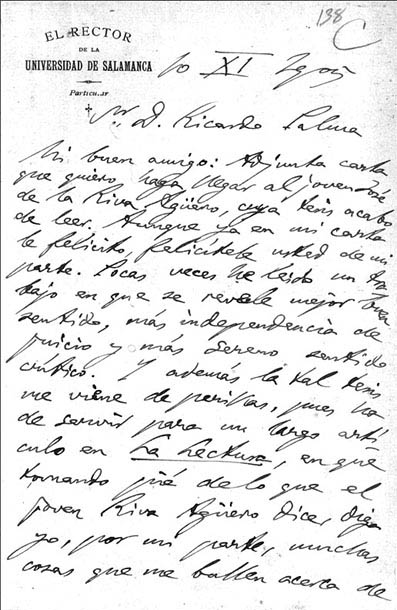 138
C
EL RECTOR
DE LA
UNIVERSIDAD DE SALAMANCA
Particular
10 XI 1905
Sr. D. Ricardo Palma
Mi buen amigo: Adjunta carta
que quiero haga llegar al joven José
de la Riva Agüero, cuya tesis acabo
de leer. Aunque ya en mi carta
le felicito, felicítele usted de mi
parte. Pocas veces he leido un tra
bajo en que se revele mejor buen
sentido, más independencia de
juicio y más sereno sentido
crítico. Y además la tal tesis
me viene de perillas, pues ha
de servir para un largo artí
culo en La Lectura, en que
tomando pié de lo que el
joven Riva Agüero dice, diga
yo, por mi parte, muchas
cosas que me bullen acerca de